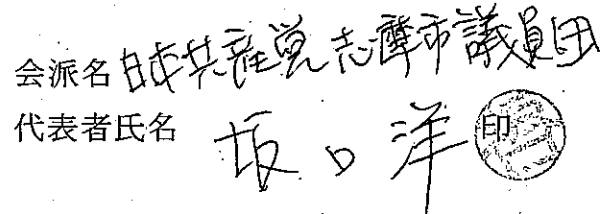 会派名 日本共産党志摩市議員団
代表者氏名 坂口洋 印